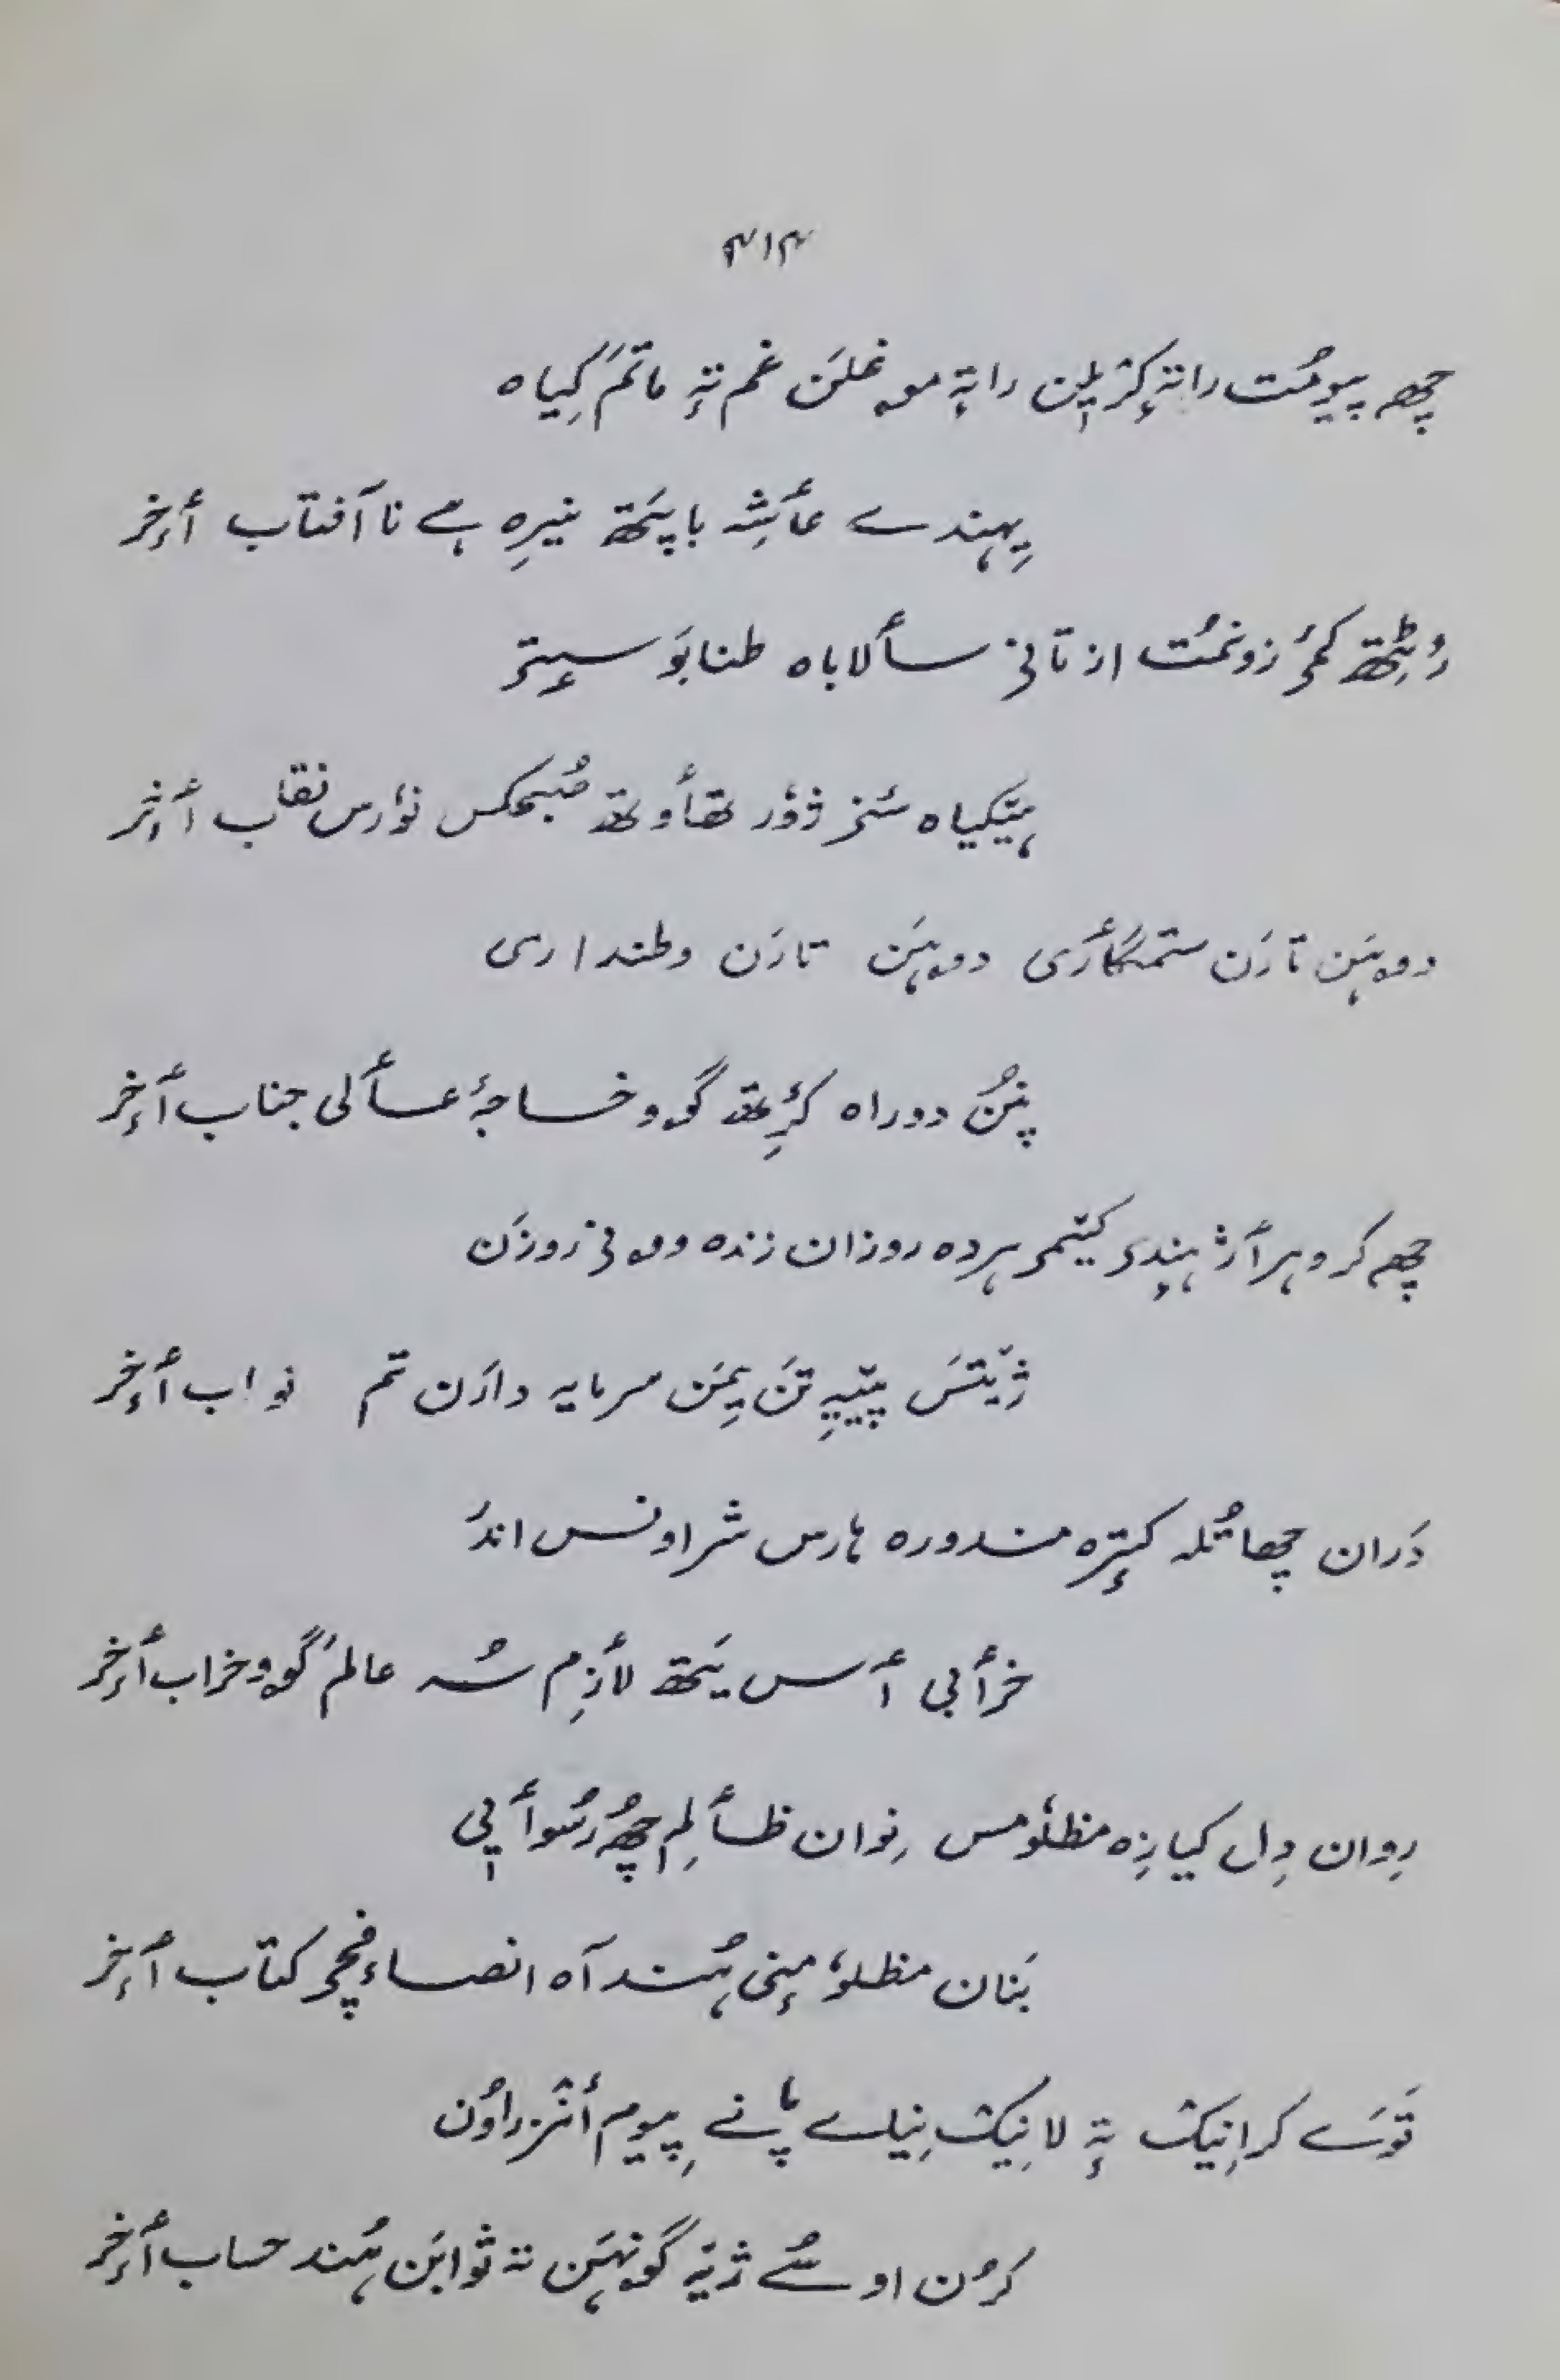 ۴۱۴
چھ پیومُت راتہٕ کرٛیلہٕن راتہٕ موغلَن غم تہٕ ماتَم کیاہ
یِہندے عٲشہِ باپَتھ نیرِہ ہے نا آفتاب ٲخِر
رُٹِتھ کٔمۍ زونمُت از تانۍ سٲلاباہ طنابَو سۭتۍ
ہیٚکیاہ شنز ژوٗر تھٲوتھ صُبحکس نوٗرس نقاب ٲخِر
دوہَن تارَن ستمگٲری دوہَن تارَن وطنداری
پنُن دوراہ کٔرِتھ گوو خاجۂ عٲلی جناب ٲخِر
چھ کر وہرٲژ ہٕندۍ کیٚمۍ ہردہ روزان زندہ وونۍ روزَن
ژیٚتَس پیٚیہِ تَن یِمَن سرمایہ دارَن تم نواب ٲخِر
دَران چھا تُلہ کیٚترٕہ مندورہ ہارس شراونس اندر
خرٲبی ٲس یَتھ لٲزِم سُہ عالَم گوو خراب ٲخِر
رِوان دِل کیازِہ مظلوٗمس نِوان ظٲلِم چھُ رُسوٲیی
بَنان مظلوٗمہٕنۍ ہُند آہ انصافٕچۍ کتاب ٲخِر
توَے کرانِیک تہٕ لانِیک نِیلے پانے پیوم أنٛزراوُن
کرُن اوسُے ژیٚہ گونہَن تہ ثوابَن ہُند حساب ٲخِر